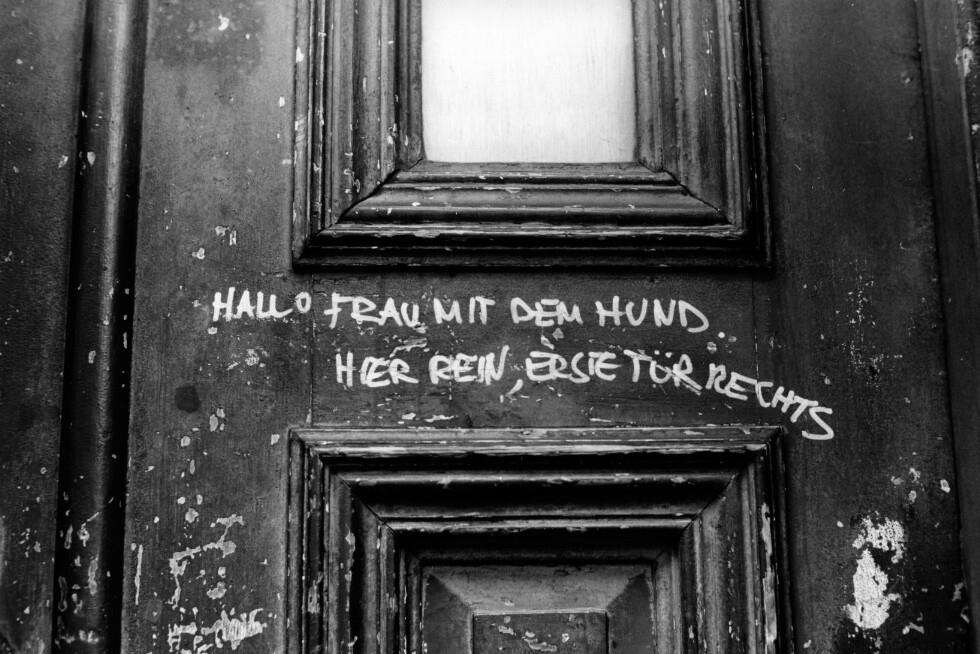 HALLO FRAU MIT DEM HUND..
HIER REIN, ERSTE TÜR RECHTS